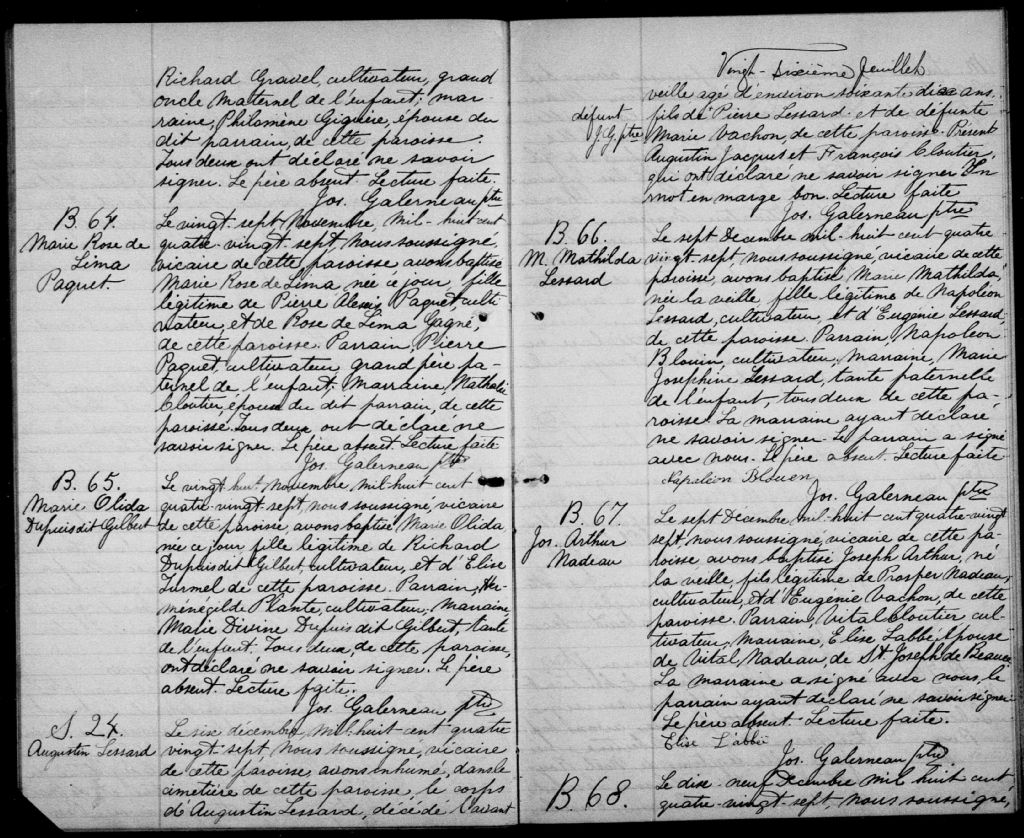 Richard Gravel, cultivateur, grand
oncle maternel de l'enfant; mar-
raine, Philomène Giguère, épouse du
dit parrain, de cette paroisse.
Tous deux ont déclaré ne savoir
signer. Le père absent. Lecture faite.
Jos. Galerneau ptre
B. 64.
Marie Rose de
Lima
Paquet
Le vingt-sept Novembre, mil-huit cent
quatre-vingt-sept, nous soussigné,
vicaire de cette paroisse avons baptisé
Marie Rose de Lima née ce jour, fille
légitime de Pierre Alexis Paquet, culti-
vateur, et de Rose de Lima Gagné,
de cette paroisse. Parrain, Pierre
Paquet, cultivateur, grand père pa-
ternel de l'enfant. Marraine, Nathalie
Cloutier, épouse du dit parrain, de cette
paroisse. Tous deux ont déclaré ne
savoir signer. Le père absent. Lecture faite
Jos. Galerneau ptre
B. 65.
Marie Olida
Dupuis dit Gilbert
Le vingt huit, novembre, mil-huit cent
quatre-vingt-sept, nous soussigné, vicaire
de cette paroisse avons baptisé Marie Olida
née ce jour fille légitime de Richard
Dupuis dit Gilbert, cultivateur, et d'Elise
Turmel de cette paroisse. Parrain, Her-
ménégilde Plante, cultivateur; Marraine,
Marie Divine Dupuis dit Gilbert, tante
de l'enfant. Tous deux, de cette paroisse,
ont déclaré ne savoir signer. Le père
absent. Lecture faite.
Jos. Galerneau ptre
S. 24.
Augustin Lessard
Le six décembre, mil-huit cent quatre
vingt-sept, nous soussigné, vicaire
de cette paroisse, avons inhumé, dans le
cimetière de cette paroisse, le corps
d'Augustin Lessard, décédé l'avant
Vingt-sixième feuillet
veille agé d'environ soixante-dix ans,
défunt
J.G. ptre
fils de Pierre Lessard et de défunte
Marie Vachon, de cette paroisse. Présent
Augustin Jacques et François Cloutier,
qui ont déclaré ne savoir signer. Un
mot en marge bon. Lecture faite
Jos. Galerneau ptre
B. 66.
M. Mathilda
Lessard
Le sept Décembre mil-huit cent quatre-
vingt-sept, nous soussigné, vicaire de cette
paroisse, avons baptisé Marie Mathilda,
née la veille, fille légitime de Napoléon
Lessard, cultivateur, et d'Eugénie Lessard,
de cette paroisse. Parrain, Napoléon
Blouin, cultivateur; Marraine, Marie
Joséphine Lessard, tante paternelle
de l'enfant, tous deux de cette pa-
roisse. La marraine ayant déclaré
ne savoir signer. Le parrain a signé
avec nous. Le père absent. Lecture faite
Napoléon Blouen
Jos. Galerneau ptre
B. 67.
Jos. Arthur
Nadeau
Le sept Décembre, mil-huit cent quatre-vingt
sept, nous soussigné, vicaire de cette pa-
roisse avons baptisé Joseph Arthur, né
la veille, fils légitime de Prosper Nadeau,
cultivateur, et d'Eugénie Vachon, de cette
paroisse. Parrain, Vital Cloutier cul-
tivateur, Marraine, Elise Labbé, épouse
de Vital Nadeau, de St. Joseph de Beauce.
La marraine a signé avec nous, le
parrain ayant déclaré ne savoir signer.
Le père absent. Lecture faite.
Elise L'abbé
Jos. Galerneau ptre
B. 68.
Le dix-neuf Décembre mil huit cent
quatre-vingt-sept, nous soussigné,